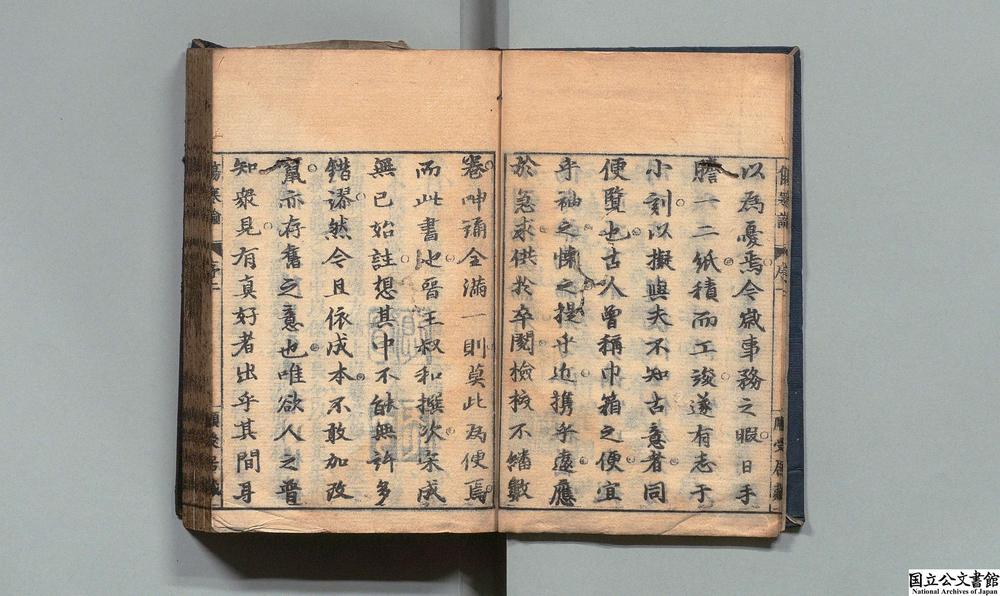 以為憂焉今歲事務之暇日手
謄一二紙積而工竣遂有志于
小刻以擬與夫不知古意者同
便覽也古人曾稱巾箱之便宜
乎袖之懷之提乎近携乎遠應
於急求供於卒閱檢挍不繙數
卷呻誦全滿一則莫此為便焉
而此書也晋王叔和撰次宋成
無已始註想其中不能無許多
錯漻然今且依成本不敢加改
竄亦存舊之意也唯欲人之普
知衆見有真好者出乎其間耳
傷寒論
序二
国立公文書館
National Archives of Japan